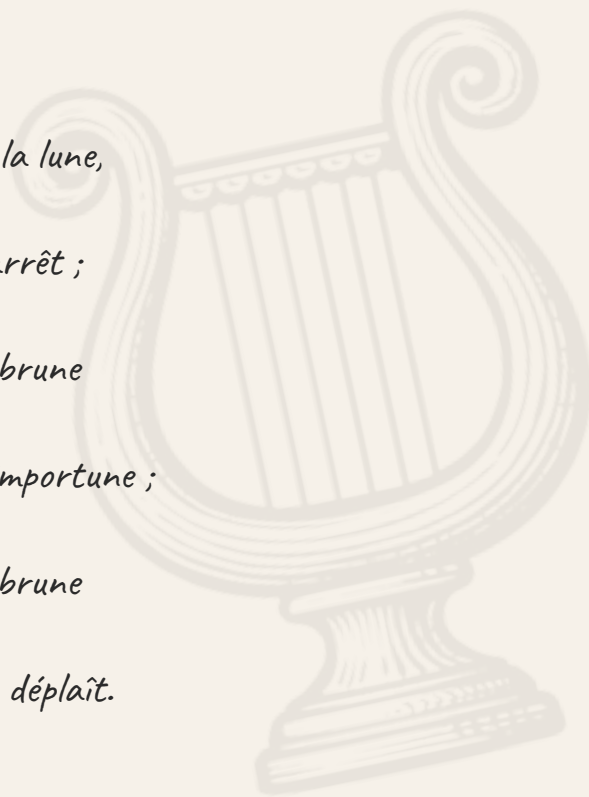 la lune,
rrêt ;
brune
mportune ;
brune
déplaît.